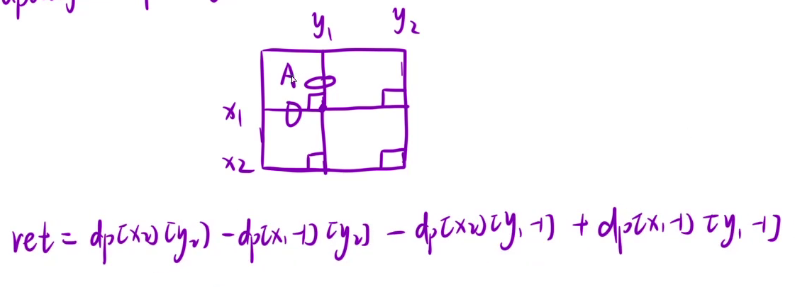 y₁ y₂
A
x₁
x₂
ret = dp[x₂][y₂] - dp[x₁-1][y₂] - dp[x₂][y₁-1] + dp[x₁-1][y₁-1]